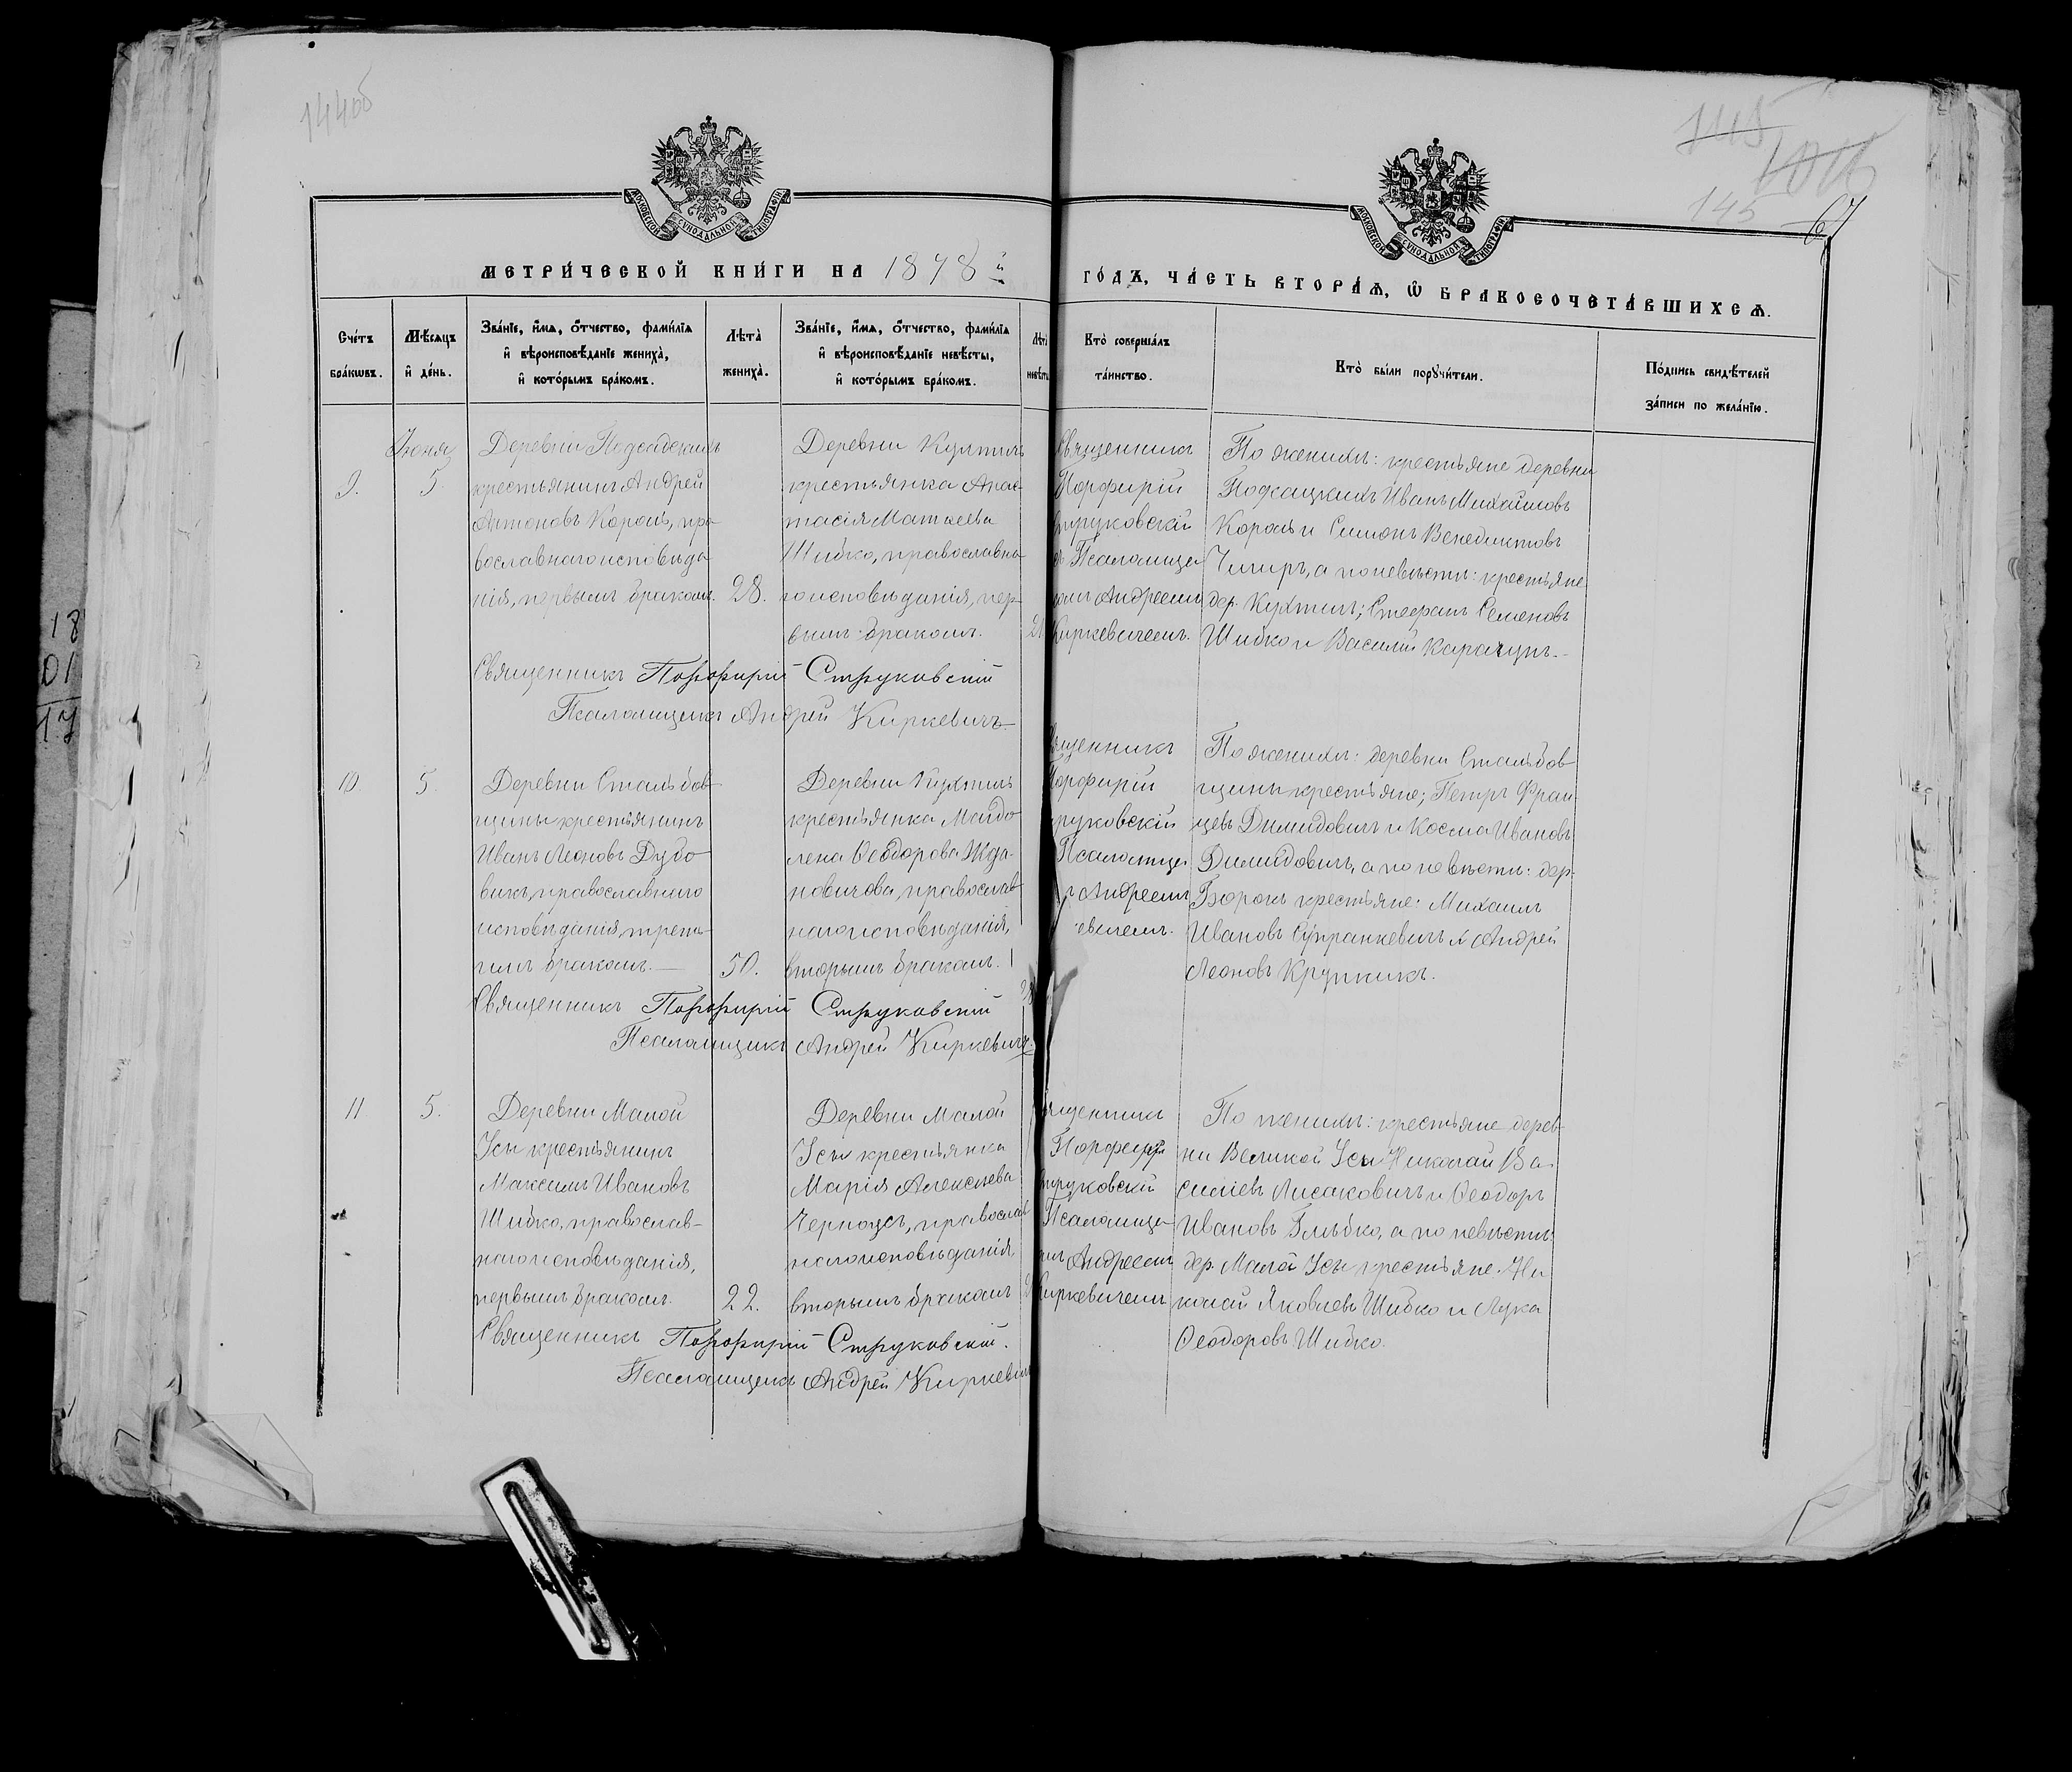 144об
145
145
67
МОСКОВСКОЙ СѴНОДАЛЬНОЙ ТИПОГРАФІИ
МОСКОВСКОЙ СѴНОДАЛЬНОЙ ТИПОГРАФІИ
МЕТРИ́ЧЕСКОЙ КНИ́ГИ НА 1878й
ГО́ДЪ, ЧА́СТЬ ВТОРА́Ѧ, Ѡ҆ БРАКОСОЧЕТА́ВШИХСѦ.
Сче́тъ
бра́кѡвъ.
Мѣ́сѧцъ
и҆ де́нь.
Зва́нїе, и҆́мѧ, ѻ҆́тчество, фами́лїѧ
и҆ вѣроисповѣ́данїе жениха̀,
и҆ кото́рымъ бра́комъ.
Лѣ́та̀
жениха̀.
Зва́нїе, и҆́мѧ, ѻ҆́тчество, фами́лїѧ
и҆ вѣроисповѣ́данїе невѣ́сты,
и҆ кото́рымъ бра́комъ.
Лѣта̀
невѣсты
Кто̀ соверша́лъ
та́инство.
Кто̀ бы́ли порꙋчи́тели.
По́дпись свидѣ́телей
за́писи по жела́нїю.
Іюня
9.
5.
Деревни Подсадскихъ
крестьянинъ Андрей
Антоновъ Король, пра-
вославнаго исповѣда
нія, первымъ бракомъ.
28.
Деревни Кухтичъ
крестьянка Анас-
тасія Матѳеева
Шибко, православна
го исповѣданія, пер-
вымъ бракомъ.
21
Священникъ
Порфирій
Струковскій
съ Псаломщи
комъ Андреемъ
Киркевичемъ.
По женихѣ: крестьяне деревни
Подсацкихъ Иванъ Михайловъ
Король и Симонъ Венедиктовъ
Чигиръ, а по невѣстѣ: крестьяне
дер. Кухтичъ; Стефанъ Семеновъ
Шибко и Василій Карачунъ.
Священникъ Порфирій Струковскій
Псаломщикъ Андрей Киркевичъ
10.
5.
Деревни Стальбов-
щины крестьянинъ
Иванъ Леоновъ Дубо
викъ, православнаго
исповѣданія, треть-
имъ бракомъ.
50.
Деревни Кухтичъ
крестьянка Магда
лена Ѳеодорова Жда-
новичова, православ
наго исповѣданія,
вторымъ бракомъ.
щенникъ
Порфирій
руковскій
Псаломщи
Андреемъ
евичемъ.
По женихѣ: деревни Стальбов
щины крестьяне; Петръ Фран
цевъ Димидовичъ и Косма Ивановъ
Димидовичъ, а по невѣстѣ: дер.
Борокъ крестьяне: Михаилъ
Ивановъ Супранкевичъ и Андрей
Леоновъ Крупникъ.
Священникъ Порфирій Струковскій
Псаломщикъ Андрей Киркевичъ.
11
5.
Деревни Малой
Усы крестьянинъ
Максимъ Ивановъ
Шибко, православ-
наго исповѣданія,
первымъ бракомъ.
22.
Деревни Малой
Усы крестьянка
Марія Алексѣева
Черноусъ, православ
наго исповѣданія,
вторымъ бракомъ
щенникъ
Порфирій
Струковскій
Псаломщи
омъ Андреемъ
Киркевичемъ
По женихѣ: крестьяне дерев-
ни Великой Усы Николай Ва-
силіевъ Лисаковичъ и Ѳеодоръ
Ивановъ Глыбко, а по невѣстѣ:
дер. Малой Усы крестьяне. Ни
колай Яковлевъ Шибко и Лука
Ѳеодоровъ Шибко.
Священникъ Порфирій Струковскій.
Псаломщикъ Андрей Киркевичъ
18
01
17